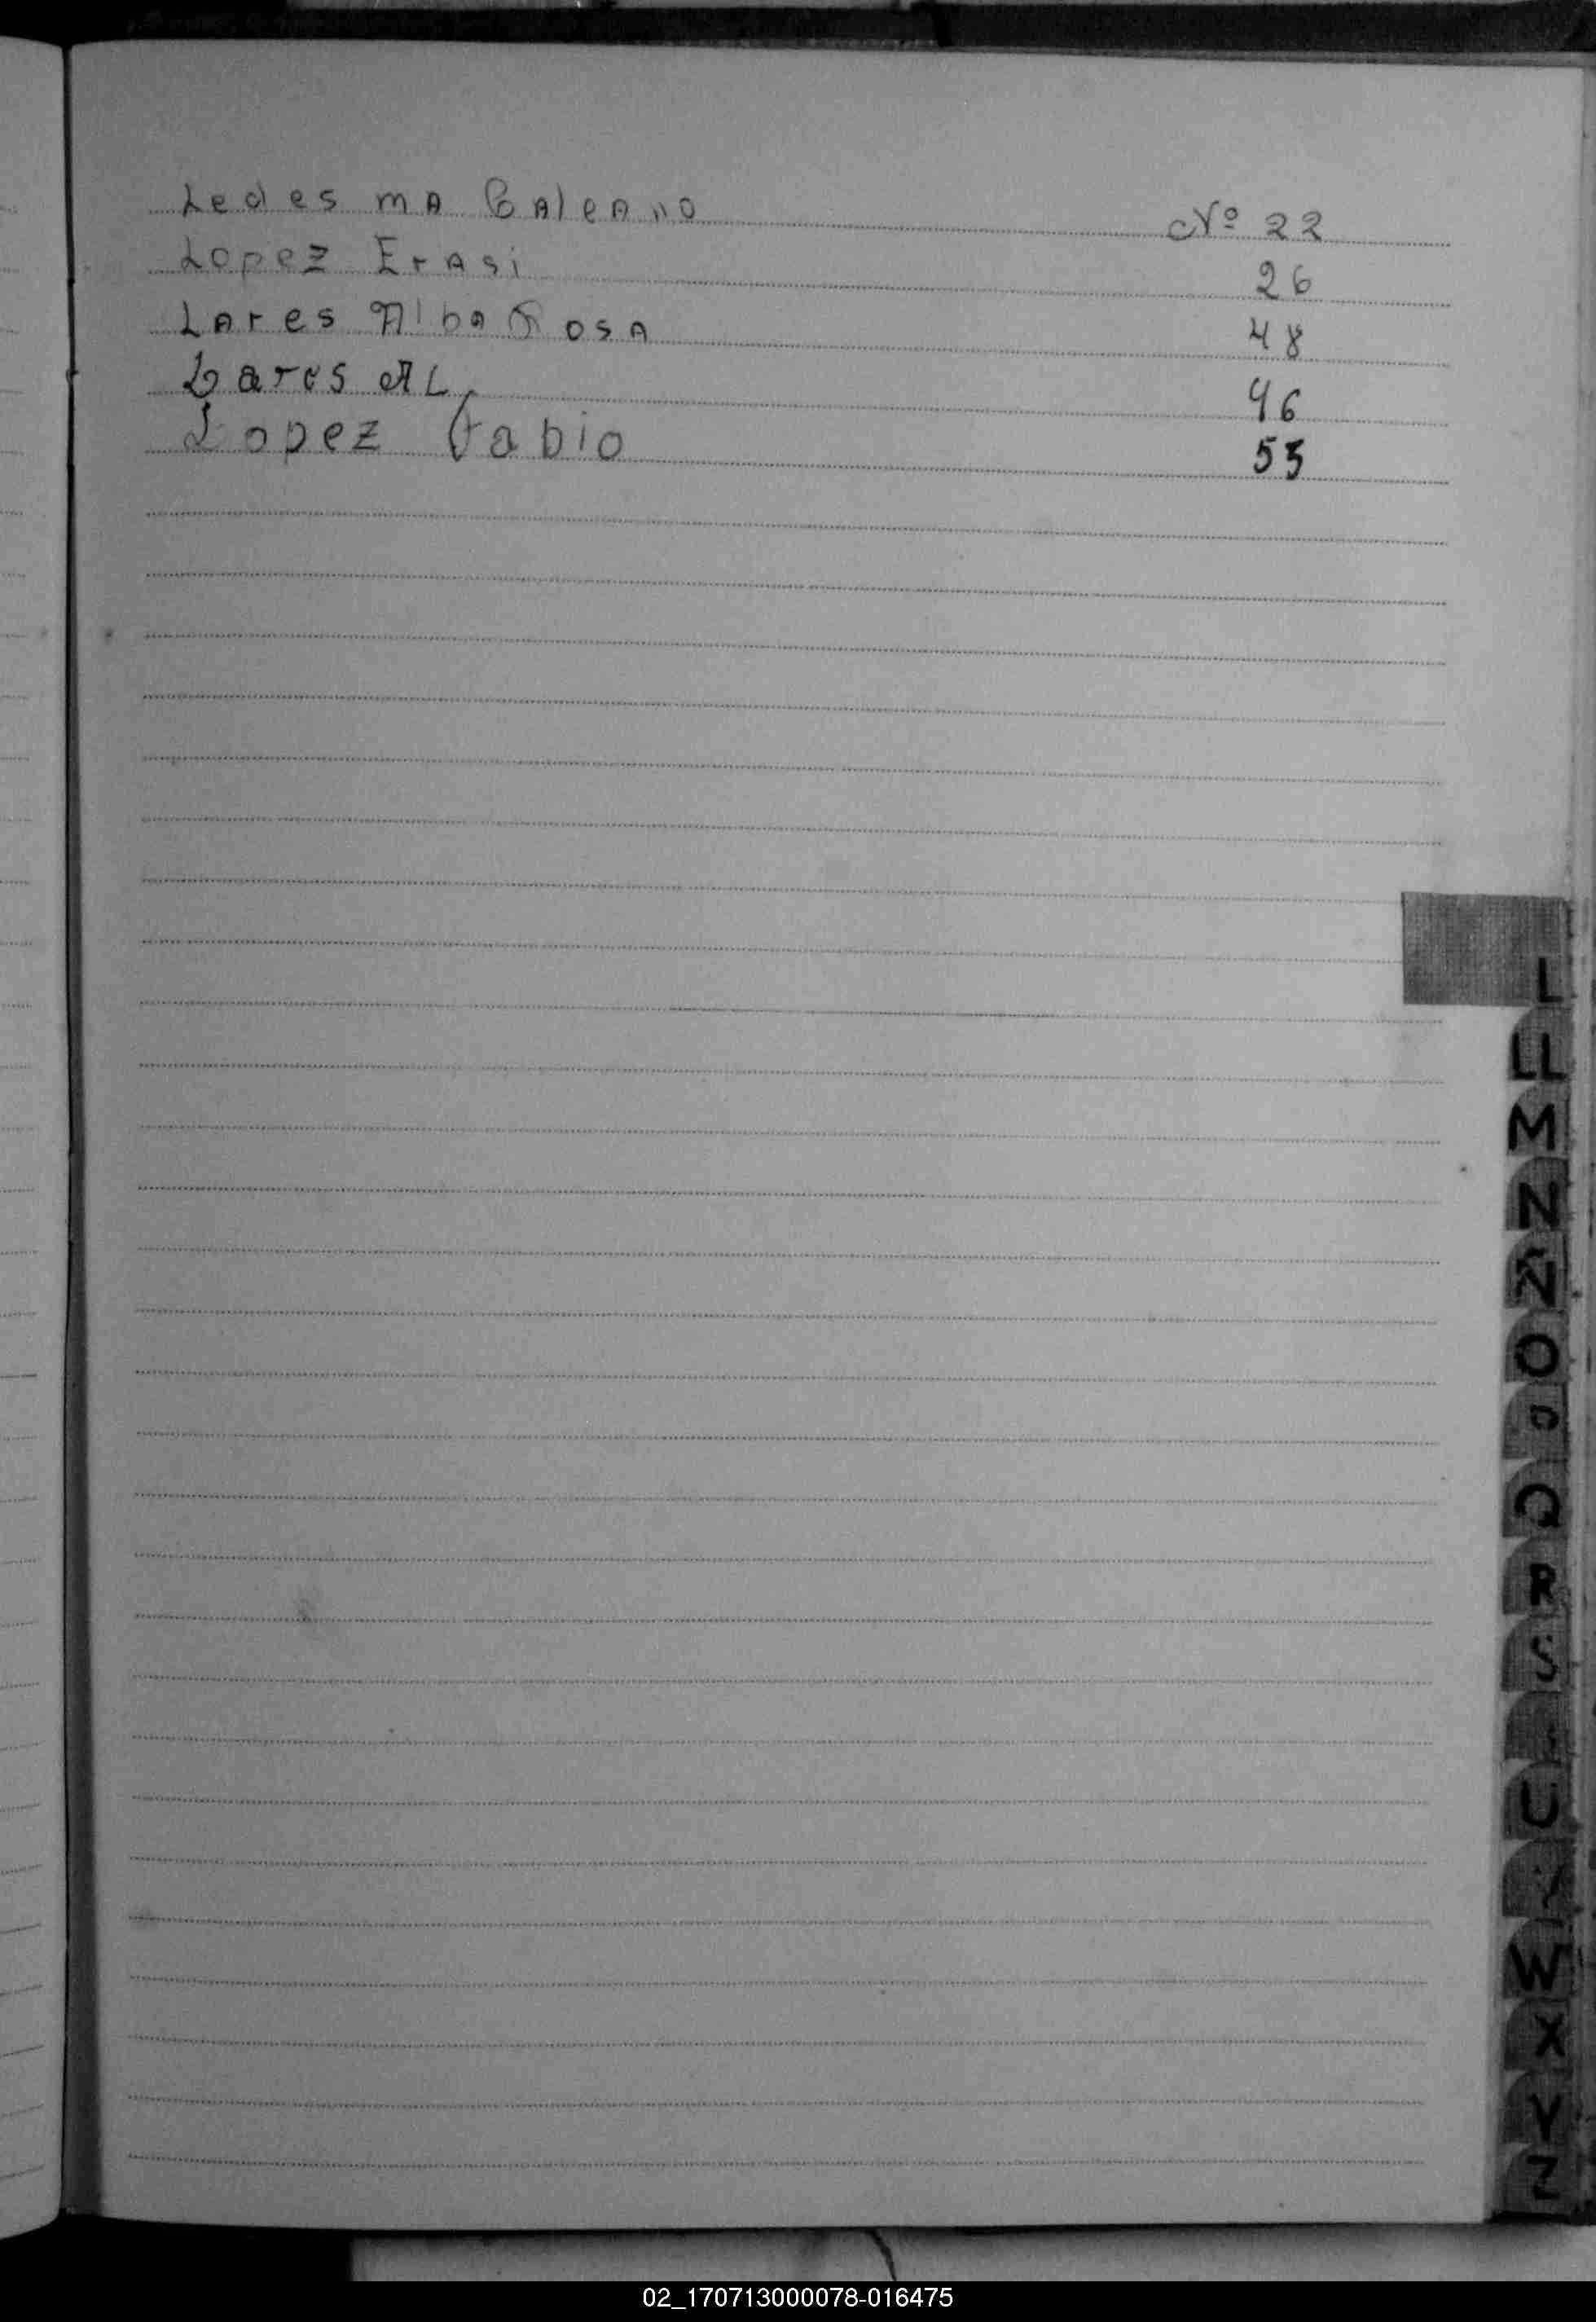 Ledesma Galeano Nº 22
Lopez Erasi 26
Lares Alba Rosa 48
Lares AL 46
Lopez Fabio 55
L
LL
M
N
Ñ
O
P
Q
R
S
U
W
X
Y
Z
02_170713000078-016475